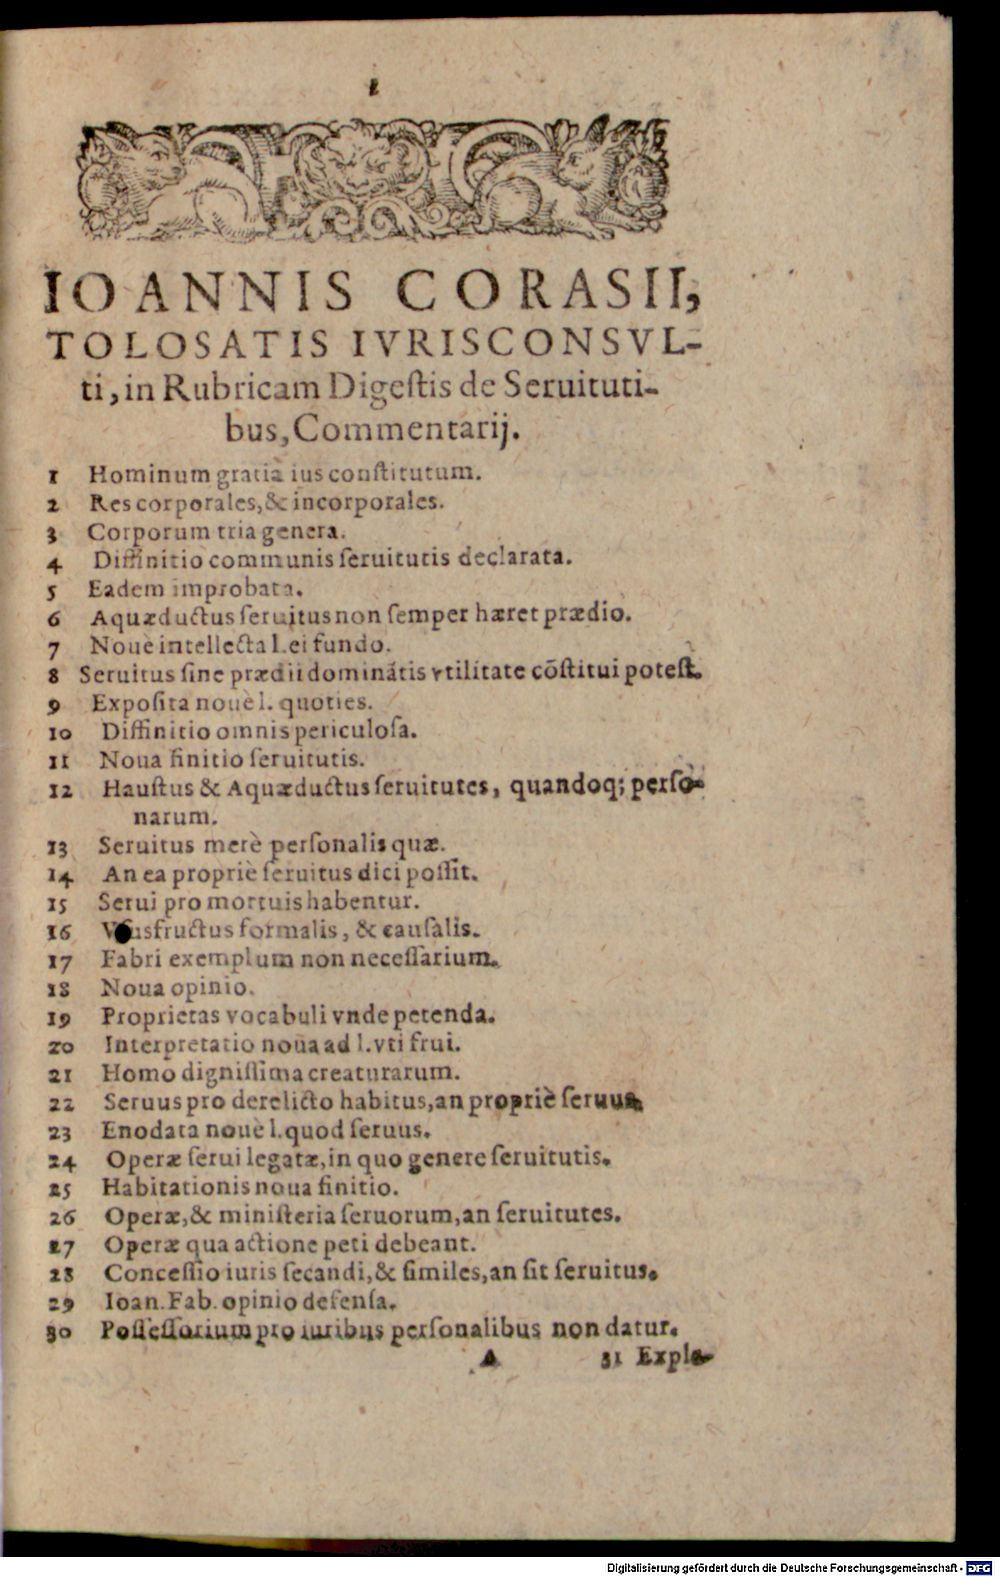 1
IOANNIS CORASII,
TOLOSATIS IVRISCONSVL-
ti, in Rubricam Digeſtis de Seruituti-
bus, Commentarij.
1 Hominum gratia ius conſtitutum.
2 Res corporales, & incorporales.
3 Corporum tria genera.
4 Diffinitio communis ſeruitutis declarata.
5 Eadem improbata.
6 Aquæductus ſeruitus non ſemper hæret prædio.
7 Nouè intellecta l. ei fundo.
8 Seruitus ſine prædii dominãtis vtilitate cõſtitui poteſt.
9 Expoſita nouè l. quoties.
10 Diffinitio omnis periculoſa.
11 Noua finitio ſeruitutis.
12 Hauſtus & Aquæductus ſeruitutes, quandoq; perſo-
narum.
13 Seruitus merè perſonalis quæ.
14 An ea propriè ſeruitus dici poſſit.
15 Serui pro mortuis habentur.
16 Vſusfructus formalis, & cauſalis.
17 Fabri exemplum non neceſſarium.
18 Noua opinio.
19 Proprietas vocabuli vnde petenda.
20 Interpretatio noua ad l. vti frui.
21 Homo digniſſima creaturarum.
22 Seruus pro derelicto habitus, an propriè ſeruus.
23 Enodata nouè l. quod ſeruus.
24 Operæ ſerui legatæ, in quo genere ſeruitutis.
25 Habitationis noua finitio.
26 Operæ, & miniſteria ſeruorum, an ſeruitutes.
27 Operæ qua actione peti debeant.
28 Conceſſio iuris ſecandi, & ſimiles, an ſit ſeruitus.
29 Ioan. Fab. opinio defenſa.
30 Poſſeſſorium pro iuribus perſonalibus non datur.
A 31 Expla-
Digitalisierung gefördert durch die Deutsche Forschungsgemeinschaft - DFG